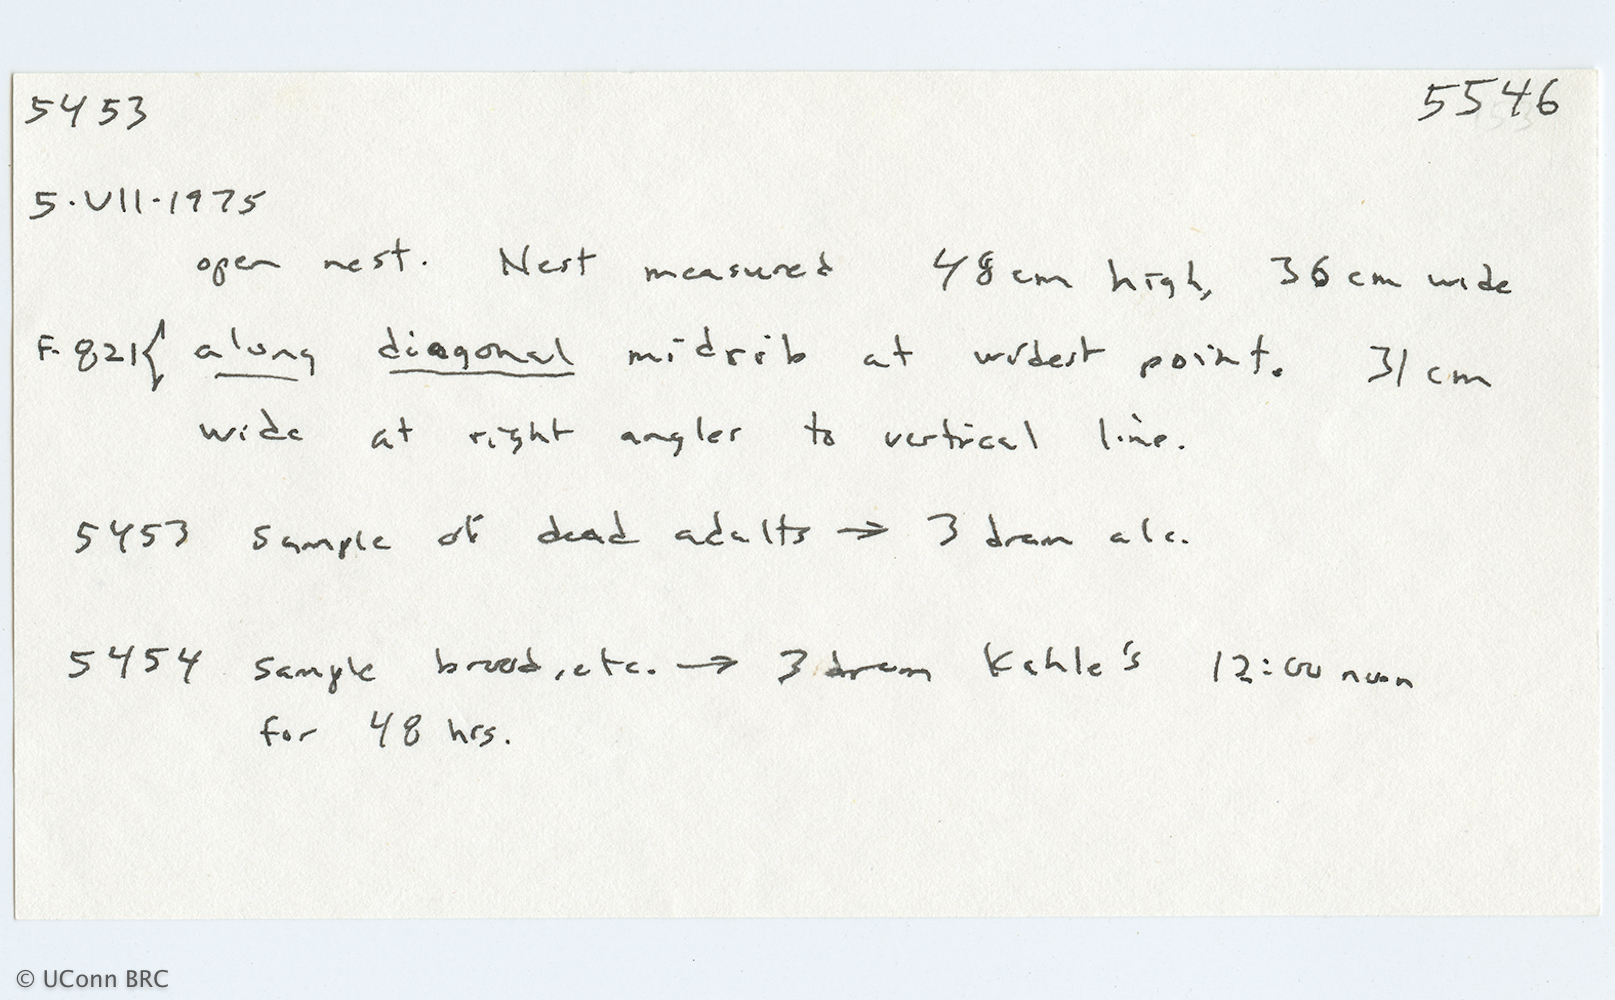 5453 5546
5·VII·1975
open nest. Nest measured 48 cm high, 36 cm wide
F-821{ along diagonal midrib at widest point. 31 cm
wide at right angles to vertical line.
5453 sample of dead adults → 3 dram alc.
5454 sample brood, etc. → 3 dram Kahle's 12:00 noon
for 48 hrs.
© UConn BRC